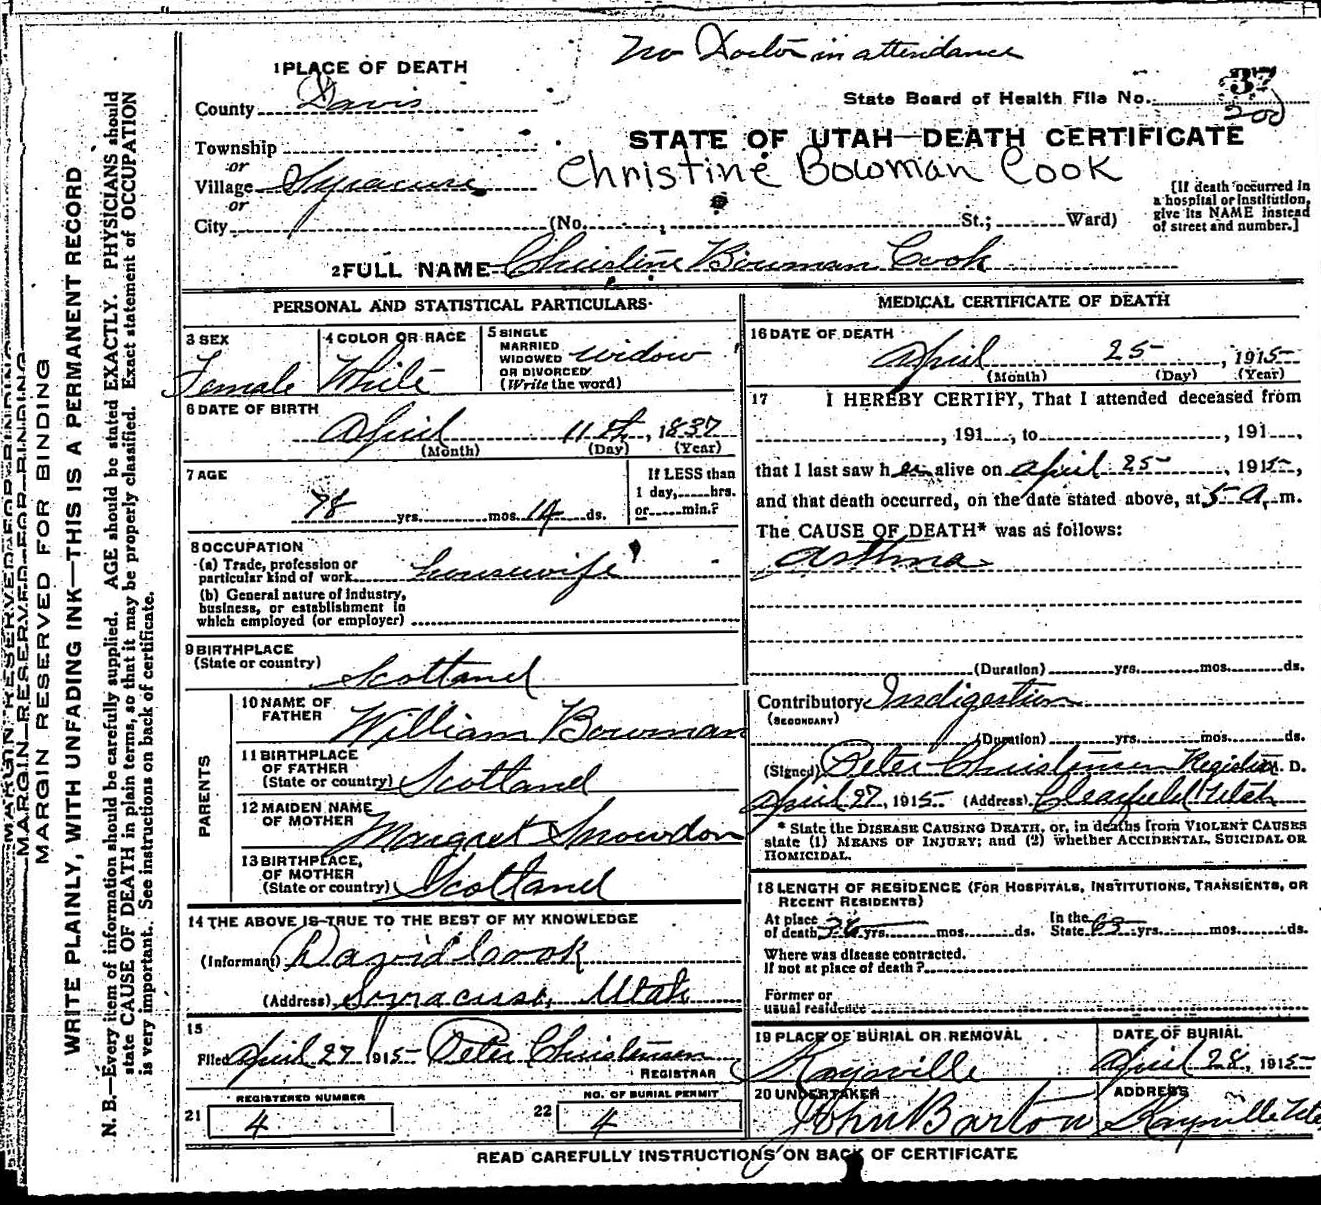 No Doctor in attendance
1 PLACE OF DEATH
County Davis
State Board of Health File No. 37
200
Township
STATE OF UTAH—DEATH CERTIFICATE
or
Village Syracuse
Christine Bowman Cook
or
City (No. St.; Ward)
[If death occurred in
a hospital or institution,
give its NAME instead
of street and number.]
2 FULL NAME Christine Bowman Cook
PERSONAL AND STATISTICAL PARTICULARS
3 SEX
Female
4 COLOR OR RACE
White
5 SINGLE
MARRIED
WIDOWED
OR DIVORCED
(Write the word)
widow
6 DATE OF BIRTH
April 11th, 1837
(Month) (Day) (Year)
7 AGE
78 yrs. mos. 14 ds.
If LESS than
1 day, hrs.
or min.?
8 OCCUPATION
(a) Trade, profession or
particular kind of work housewife
(b) General nature of industry,
business, or establishment in
which employed (or employer)
9 BIRTHPLACE
(State or country)
Scotland
PARENTS
10 NAME OF
FATHER
William Bowman
11 BIRTHPLACE
OF FATHER
(State or country) Scotland
12 MAIDEN NAME
OF MOTHER
Margret Snowdon
13 BIRTHPLACE,
OF MOTHER
(State or country) Scotland
14 THE ABOVE IS TRUE TO THE BEST OF MY KNOWLEDGE
(Informant) David Cook
(Address) Syracuse, Utah
15
Filed April 27 1915 Peter Christensen
REGISTRAR
21 REGISTERED NUMBER
4
22 NO. OF BURIAL PERMIT
4
MEDICAL CERTIFICATE OF DEATH
16 DATE OF DEATH
April 25, 1915
(Month) (Day) (Year)
17 I HEREBY CERTIFY, That I attended deceased from
, 191 , to , 191 ,
that I last saw her alive on April 25, 1915,
and that death occurred, on the date stated above, at 5 A. m.
The CAUSE OF DEATH* was as follows:
Asthma
(Duration) yrs. mos. ds.
Contributory Indigestion
(SECONDARY)
(Duration) yrs. mos. ds.
(Signed) Peter Christensen Registrar M. D.
April 27, 1915 (Address) Clearfield Utah
* State the DISEASE CAUSING DEATH, or, in deaths from VIOLENT CAUSES
state (1) MEANS OF INJURY; and (2) whether ACCIDENTAL, SUICIDAL OR
HOMICIDAL.
18 LENGTH OF RESIDENCE (FOR HOSPITALS, INSTITUTIONS, TRANSIENTS, OR
RECENT RESIDENTS)
At place
of death 36 yrs. mos. ds.
In the
State 63 yrs. mos. ds.
Where was disease contracted.
If not at place of death?
Former or
usual residence
19 PLACE OF BURIAL OR REMOVAL
Kaysville
DATE OF BURIAL
April 28, 1915
20 UNDERTAKER
John Barton
ADDRESS
Kaysville Utah
READ CAREFULLY INSTRUCTIONS ON BACK OF CERTIFICATE
MARGIN RESERVED FOR BINDING
MARGIN RESERVED FOR BINDING
MARGIN RESERVED FOR BINDING
WRITE PLAINLY, WITH UNFADING INK—THIS IS A PERMANENT RECORD
N. B.—Every item of information should be carefully supplied. AGE should be stated EXACTLY. PHYSICIANS should
state CAUSE OF DEATH in plain terms, so that it may be properly classified. Exact statement of OCCUPATION
is very important. See instructions on back of certificate.